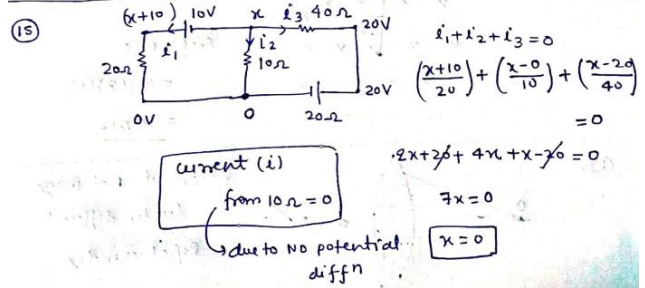 (15)
(x+10) 10V x i3 40Ω 20V
i1 i2
20Ω 10Ω
20V
0V 0 20Ω
i1+i2+i3=0
(x+10/20) + (x-0/10) + (x-20/40)
=0
2x+20+ 4x +x-20 = 0
7x=0
x=0
current (i)
from 10Ω = 0
due to NO potential
diffn